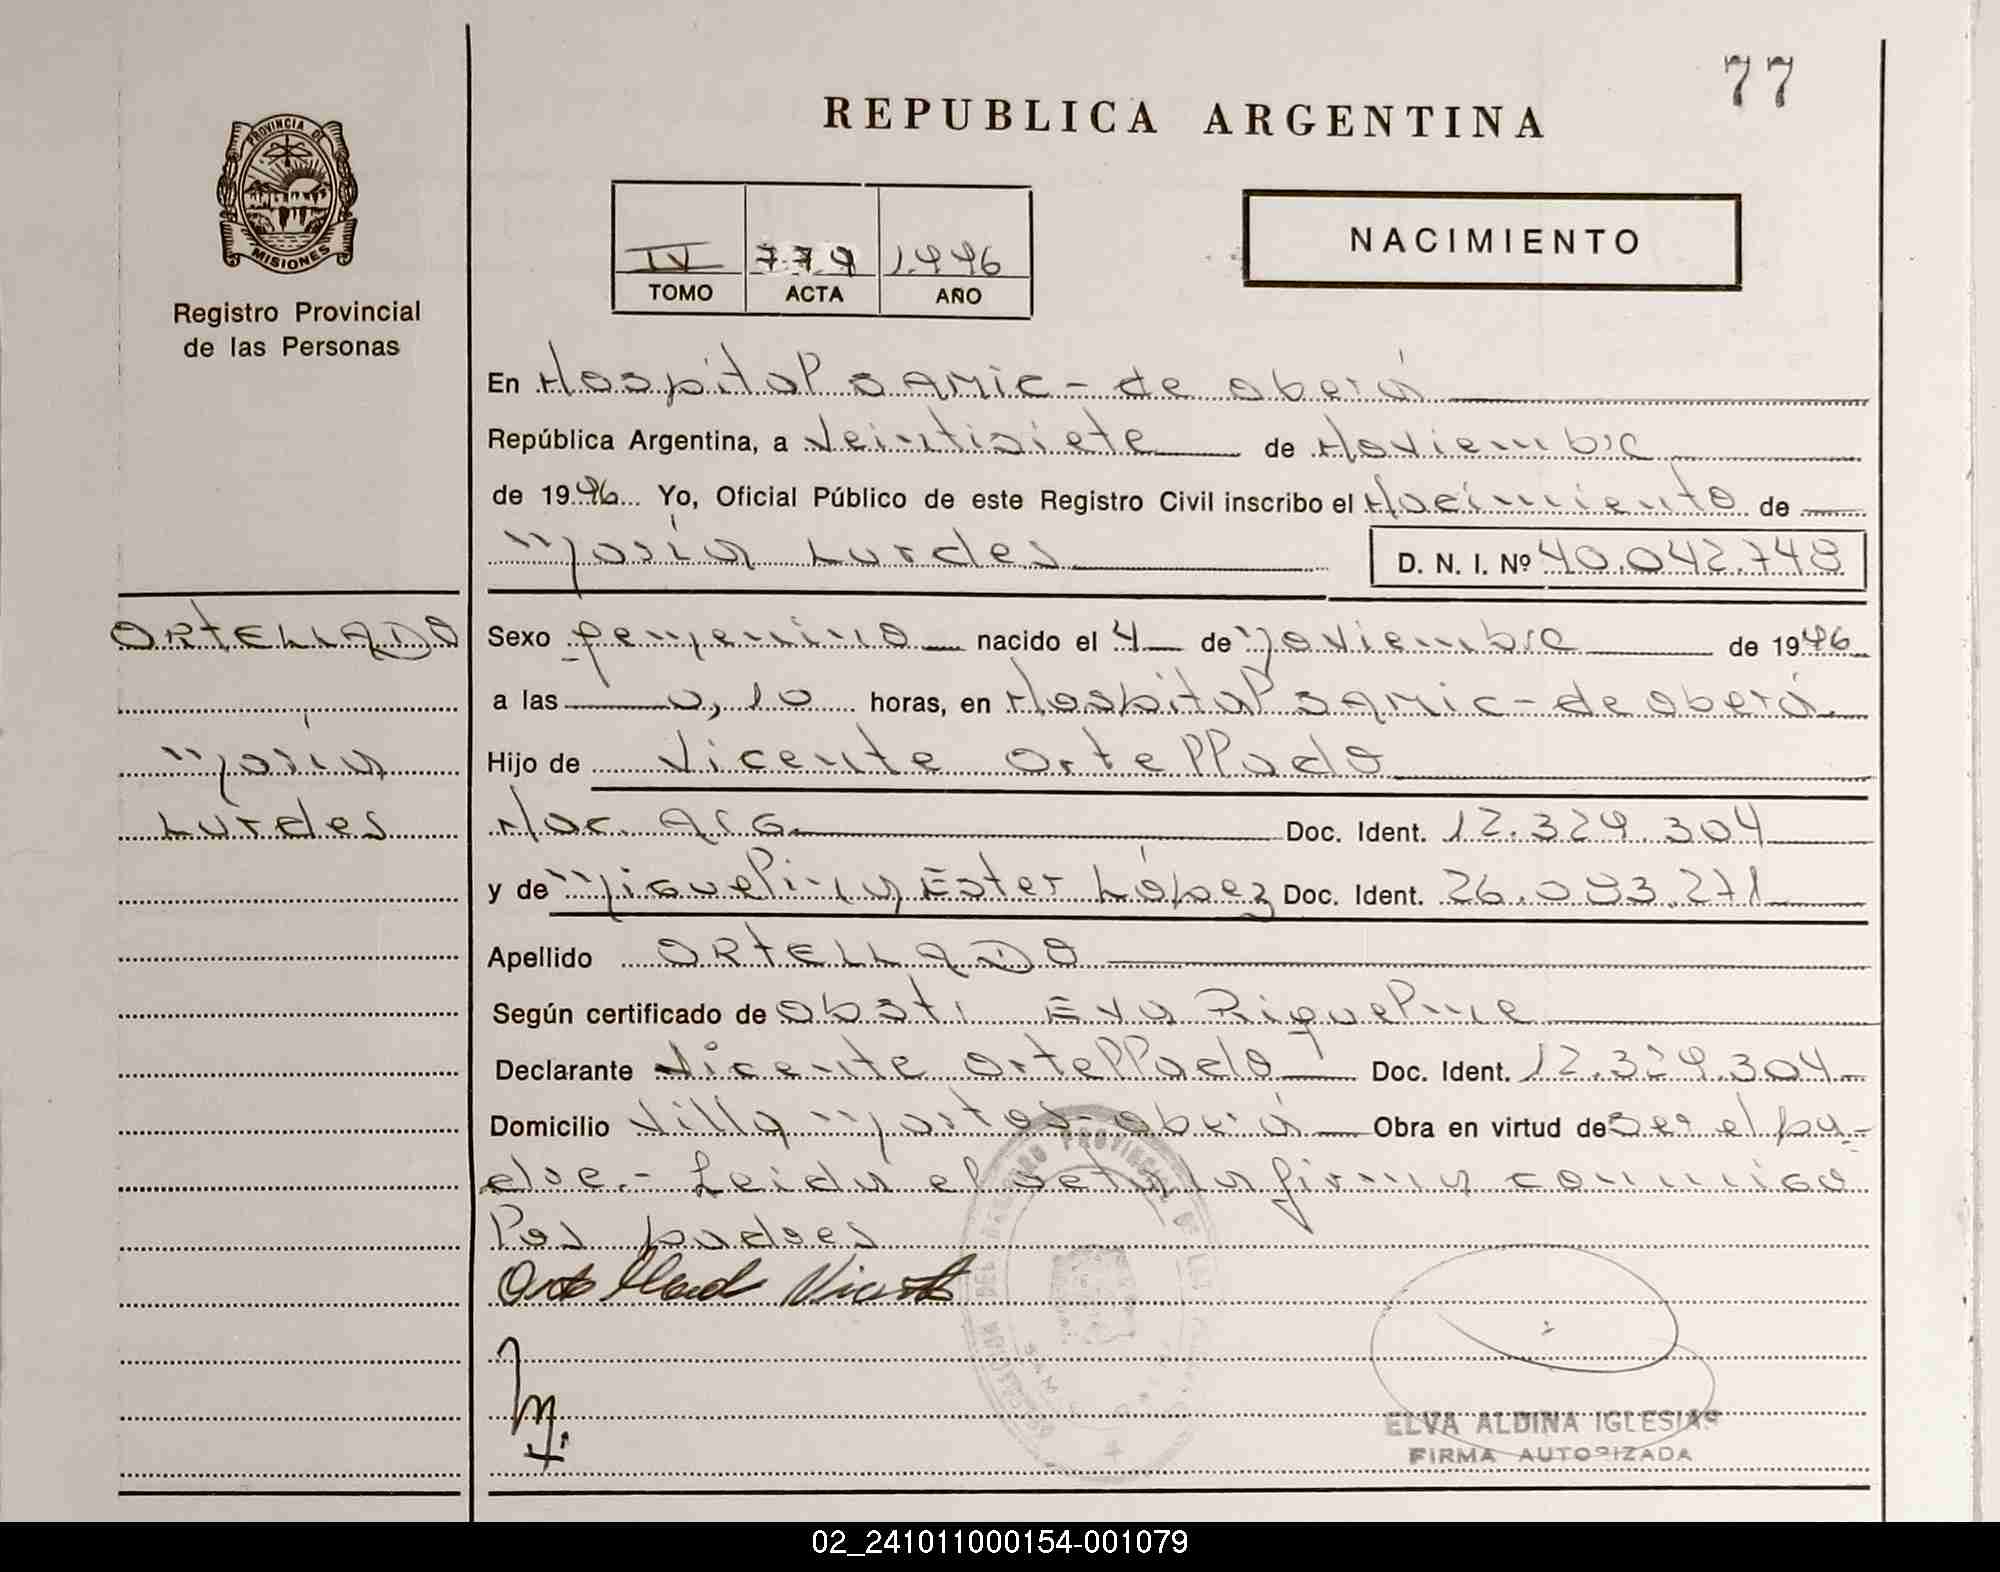 77
REPUBLICA ARGENTINA
PROVINCIA DE
MISIONES
Registro Provincial
de las Personas
IV 779 1996
TOMO ACTA AÑO
NACIMIENTO
En Hospital SAMIC - de oberá
República Argentina, a Veintisiete de Noviembre
de 1996 Yo, Oficial Público de este Registro Civil inscribo el Nacimiento de
María Lurdes D. N. I. Nº 40.042.748
ORTELLADO
María
Lurdes
Sexo femenino nacido el 4 de Noviembre de 1996
a las 0,10 horas, en Hospital SAMIC - de oberá.
Hijo de Vicente Ortellado
Nac. ARG. Doc. Ident. 12.329.304
y de Miguelina Ester López Doc. Ident. 26.093.271
Apellido ORTELLADO
Según certificado de obst. Eva Riquelme
Declarante Vicente Ortellado Doc. Ident. 12.329.304
Domicilio Villa Martos - oberá Obra en virtud de ser el pa-
dre.- Leida el acta la firman conmigo
los padres
Ortellado Vicente
ELVA ALDINA IGLESIAS
FIRMA AUTORIZADA
02_241011000154-001079